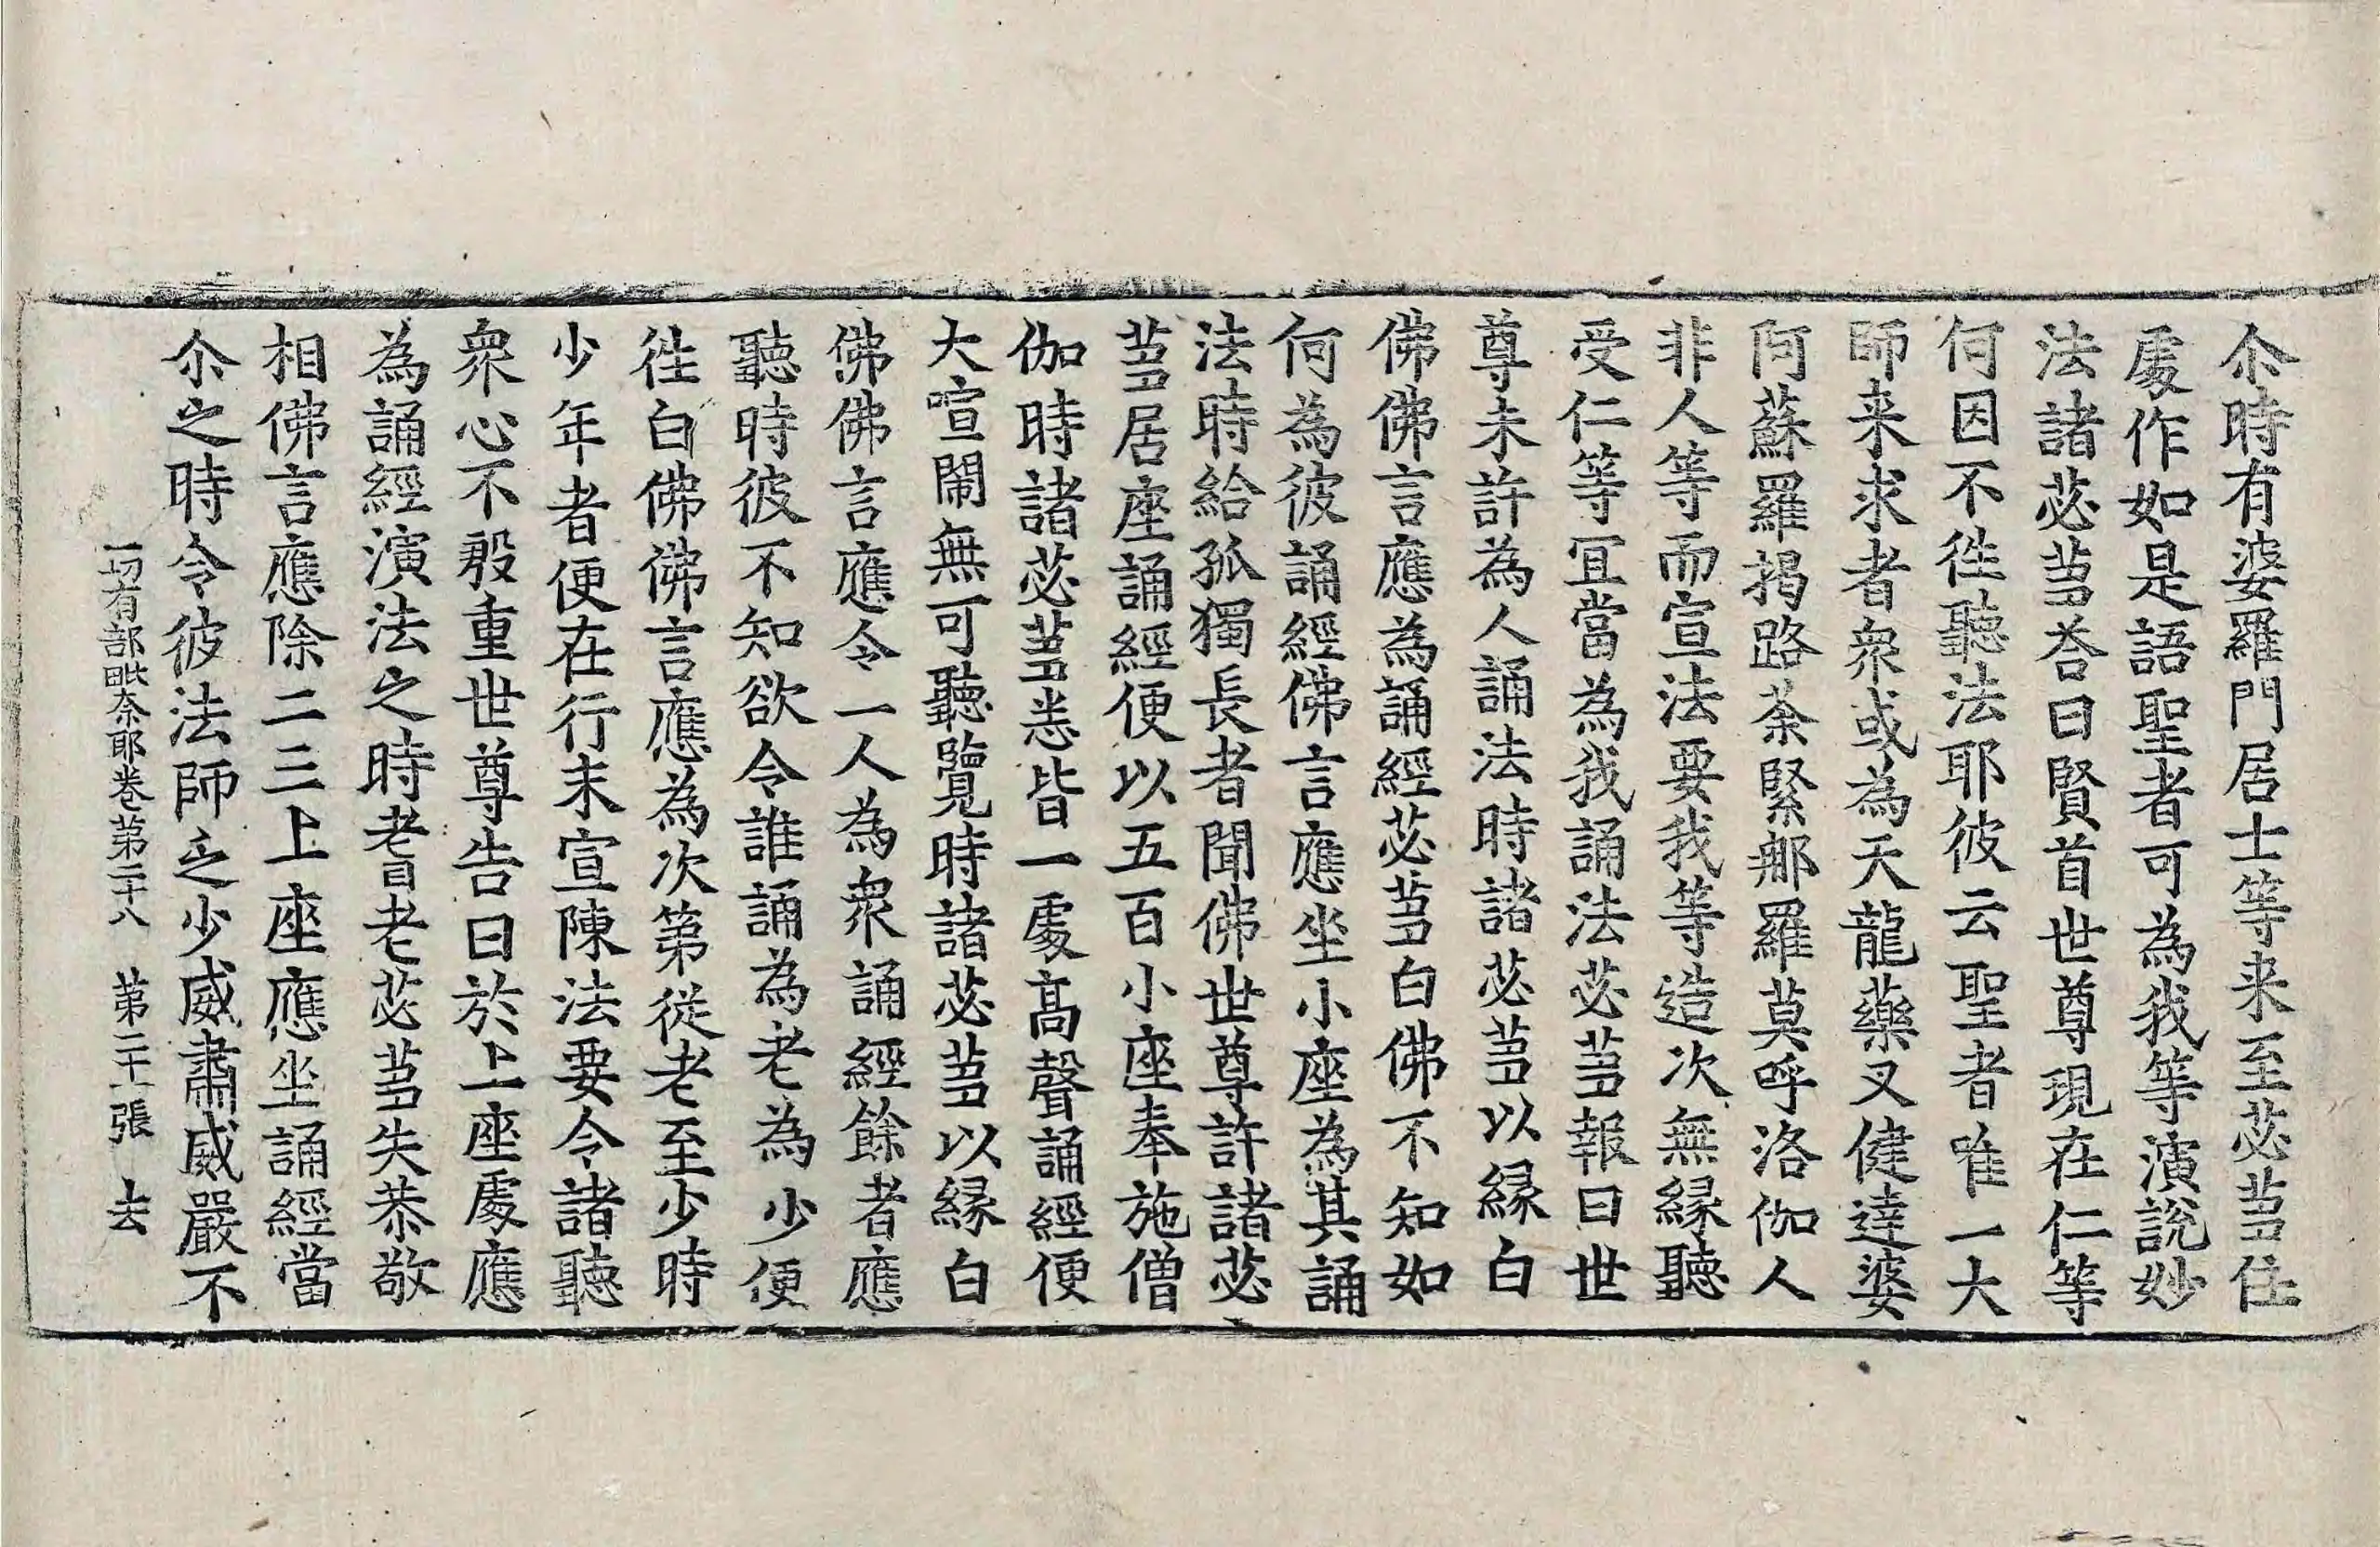 尒時有婆羅門居士等来至苾芻住
處作如是語聖者可為我等演說妙
法諸苾芻荅曰賢首世尊現在仁等
何因不徃聽法耶彼云聖者唯一大
師来求者衆或為天龍藥叉健達婆
阿蘇羅揭路荼緊那羅莫呼洛伽人
非人等而宣法要我等造次無縁聽
受仁等冝當為我誦法苾芻報曰世
尊未許為人誦法時諸苾芻以縁白
佛佛言應為誦經苾芻白佛不知如
何為彼誦經佛言應坐小座為其誦
法時給孤獨長者聞佛世尊許諸苾
芻居座誦經便以五百小座奉施僧
伽時諸苾芻悉皆一處髙聲誦經便
大喧鬧無可聽覽時諸苾芻以縁白
佛佛言應令一人為衆誦經餘者應
聽時彼不知欲令誰誦為老為少便
徃白佛佛言應為次第從老至少時
少年者便在行末宣陳法要令諸聽
衆心不殷重世尊告曰於上座處應
為誦經演法之時耆老苾芻失恭敬
相佛言應除二三上座應坐誦經當
尒之時令彼法師乏少威肅威嚴不
一切有部毗奈耶卷第二十八 第二十一張 去